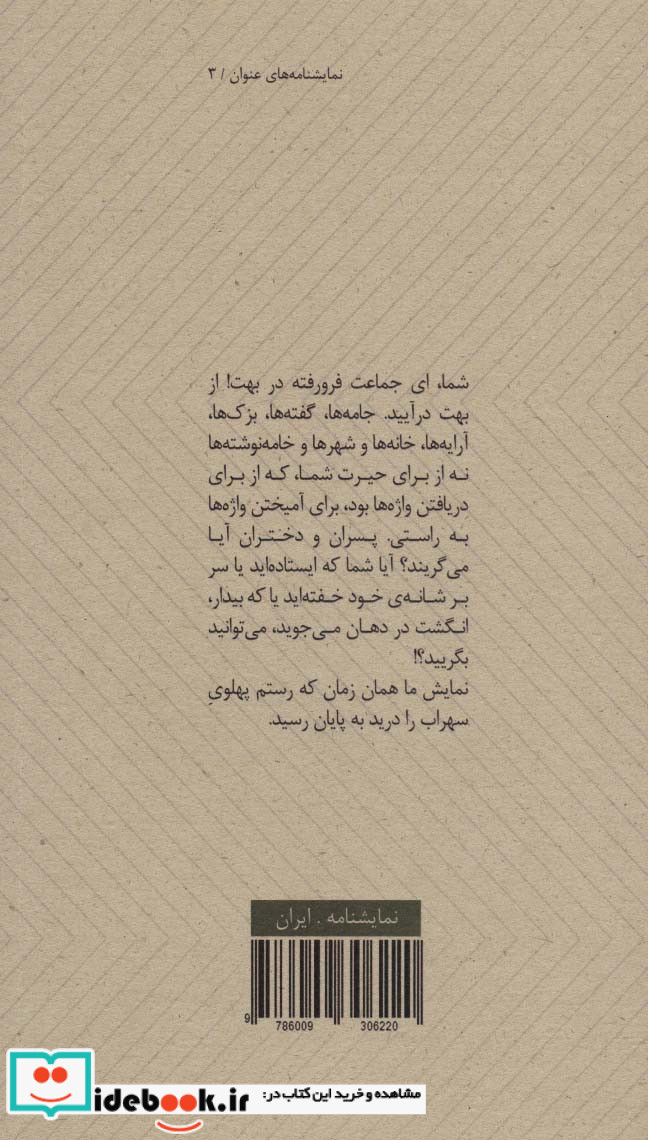 نمایشنامه‌های عنوان / ۳
شما، ای جماعت فرورفته در بهت! از
بهت درآیید. جامه‌ها، گفته‌ها، بزک‌ها،
آرایه‌ها، خانه‌ها و شهرها و خامه‌نوشته‌ها
نه از برای حیرت شما، که از برای
دریافتن واژه‌ها بود، برای آمیختن واژه‌ها
به راستی. پسران و دختران آیا
می‌گریند؟ آیا شما که ایستاده‌اید یا سر
بر شانه‌ی خود خفته‌اید یا که بیدار،
انگشت در دهان می‌جوید، می‌توانید
بگریید؟!
نمایش ما همان زمان که رستم پهلویِ
سهراب را درید به پایان رسید.
نمایشنامه . ایران
9 786009 306220
مشاهده و خرید این کتاب در:
idebook.ir